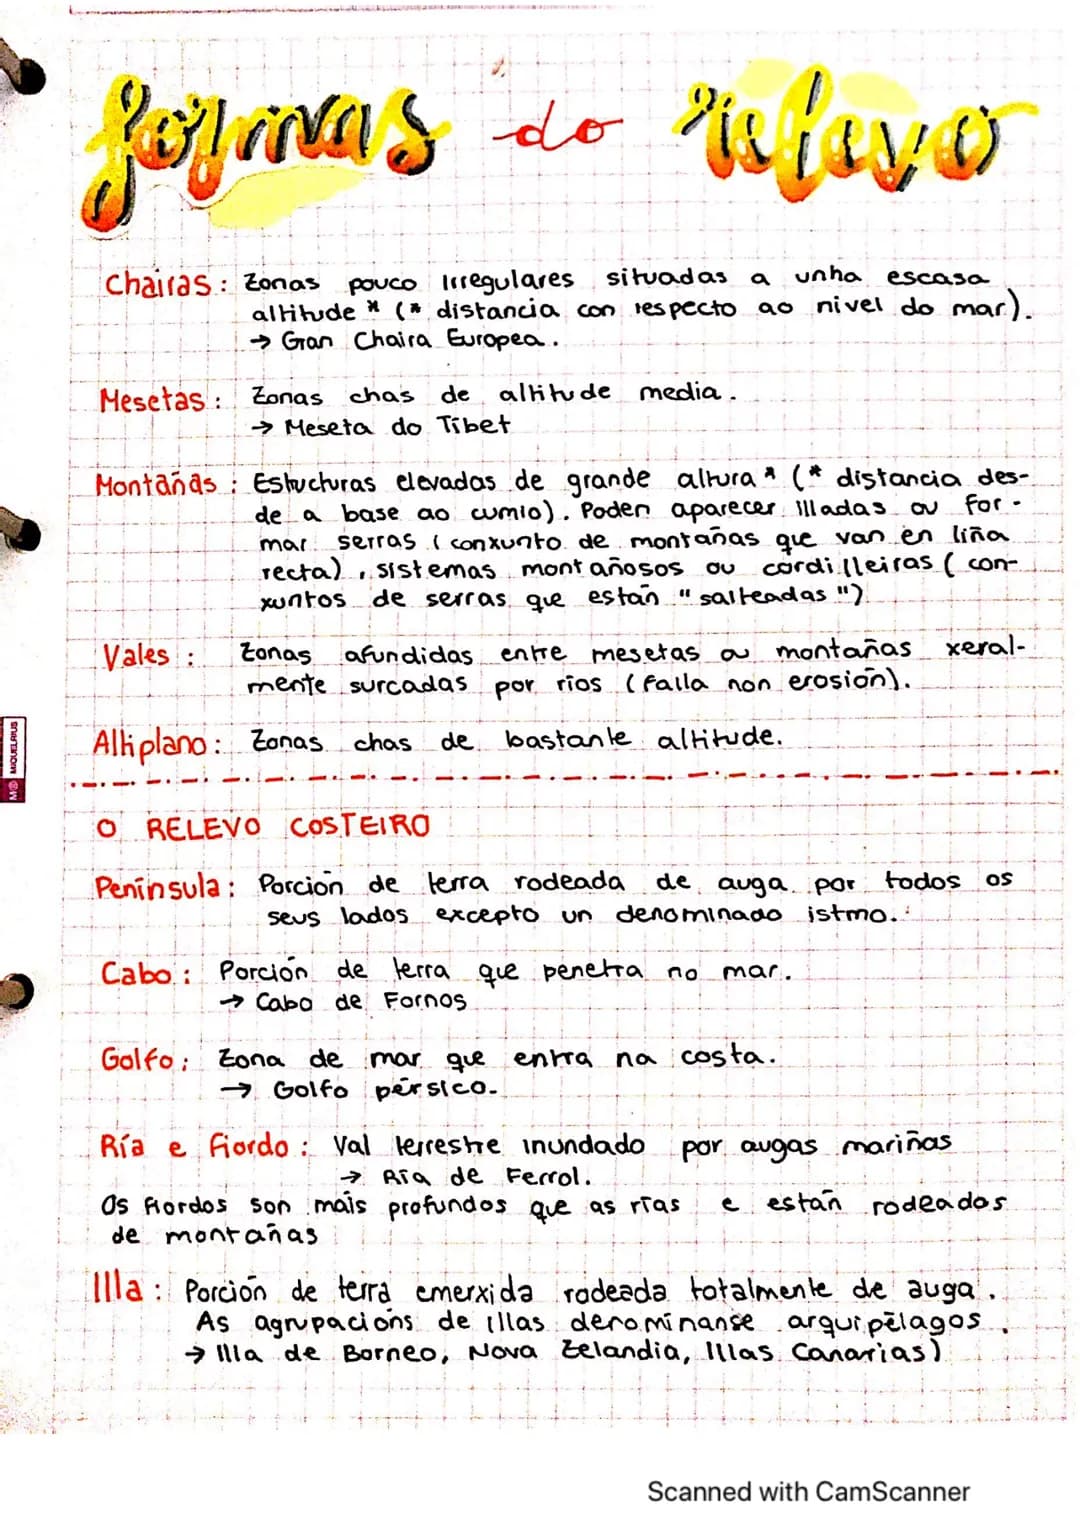 formas do relevo
Chairas: Zonas pouco irregulares situadas a unha escasa
altitude * (* distancia con respecto ao nivel do mar).
→ Gran Chaira Europea.
Mesetas: Zonas chas de altitude media.
→ Meseta do Tíbet
Montañas: Estructuras elevadas de grande altura * (* distancia des-
de a base ao cumio). Poden aparecer illadas ou for-
mar serras (conxunto de montañas que van en liña
recta), sistemas montañosos ou cordilleiras (con-
xuntos de serras que están "salteadas")
Vales: Zonas afundidas entre mesetas ou montañas xeral-
mente surcadas por ríos (falla non erosión).
Altiplano: Zonas chas de bastante altitude.
O RELEVO COSTEIRO
Península: Porción de terra rodeada de auga por todos os
seus lados excepto un denominado istmo.
Cabo: Porción de terra que penetra no mar.
→ Cabo de Fornos
Golfo: Zona de mar que entra na costa.
→ Golfo pérsico.
Ría e fiordo: Val terrestre inundado por augas mariñas
→ Ría de Ferrol.
Os fiordos son máis profundos que as rías e están rodeados
de montañas
Illa: Porción de terra emerxida rodeada totalmente de auga.
As agrupacións de illas denomínanse arquipélagos.
→ Illa de Borneo, Nova Zelandia, Illas Canarias)
MIQUELRIUS
Scanned with CamScanner